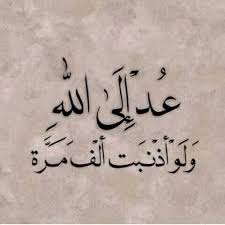 عُدْ إِلَى اللهِ
وَلَوْ أَذْنَبت ألفَ مَرَّة